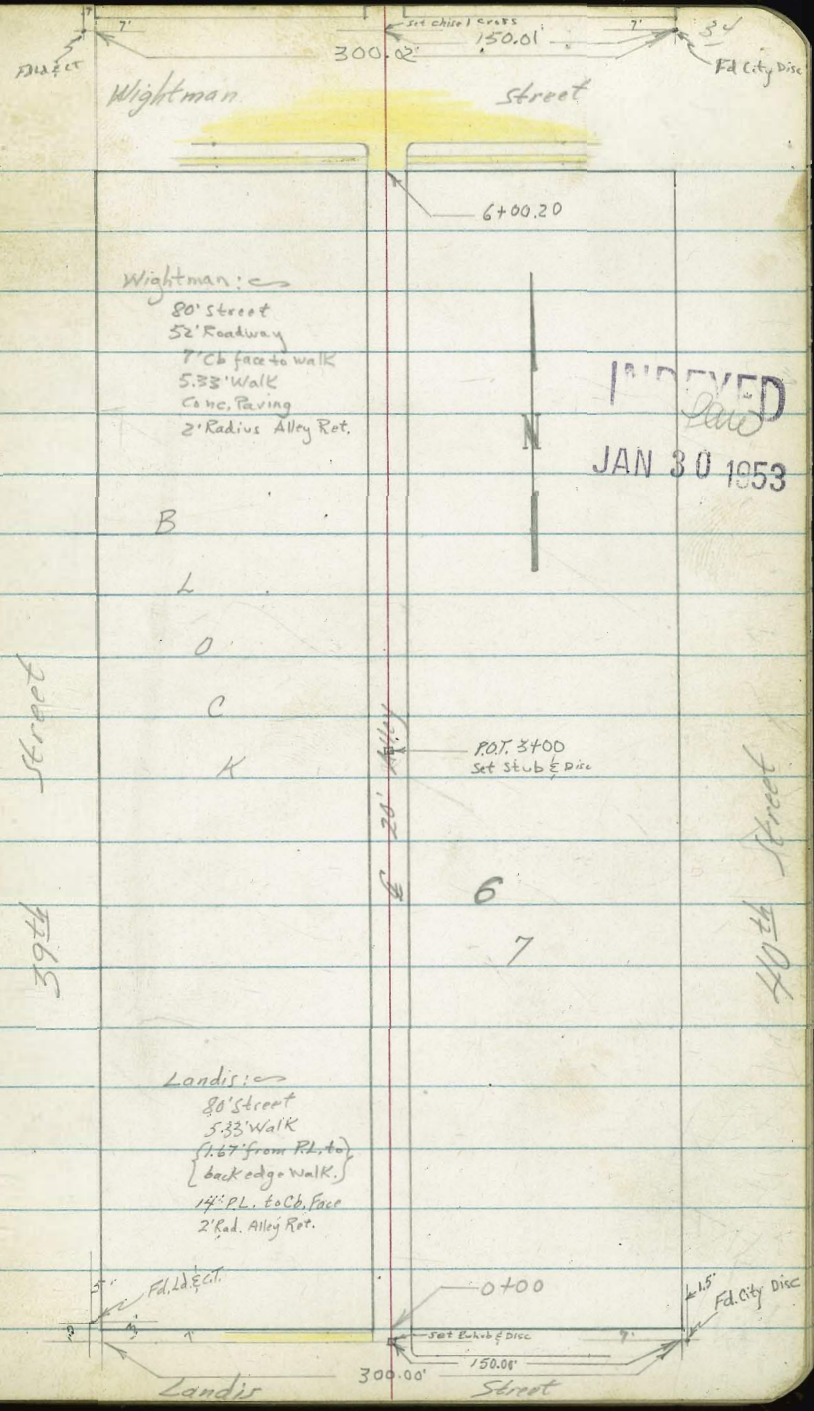 7'
7'
set chisel cross
7'
34
150.01'
300.02'
Fd City Disc
Wightman Street
6+00.20
Wightman:
80' Street
52' Roadway
7' Cb face to walk
5.33' Walk
Conc. Paving
2' Radius Alley Ret.
N
INDEXED
JAN 30 1953
B
L
O
C
K
39th Street
℄ 20' Alley
P.O.T. 3+00
Set Stub & Disc
40th Street
6
7
Landis:
80' Street
5.33' Walk
{1.67' from P.L. to}
{back edge Walk.}
14' P.L. to Cb. Face
2' Rad. Alley Ret.
5'
Fd. Ld. & C.T.
0+00
1.5'
Fd. City Disc
7'
Set & Disc
7'
150.00'
300.00'
Landis Street